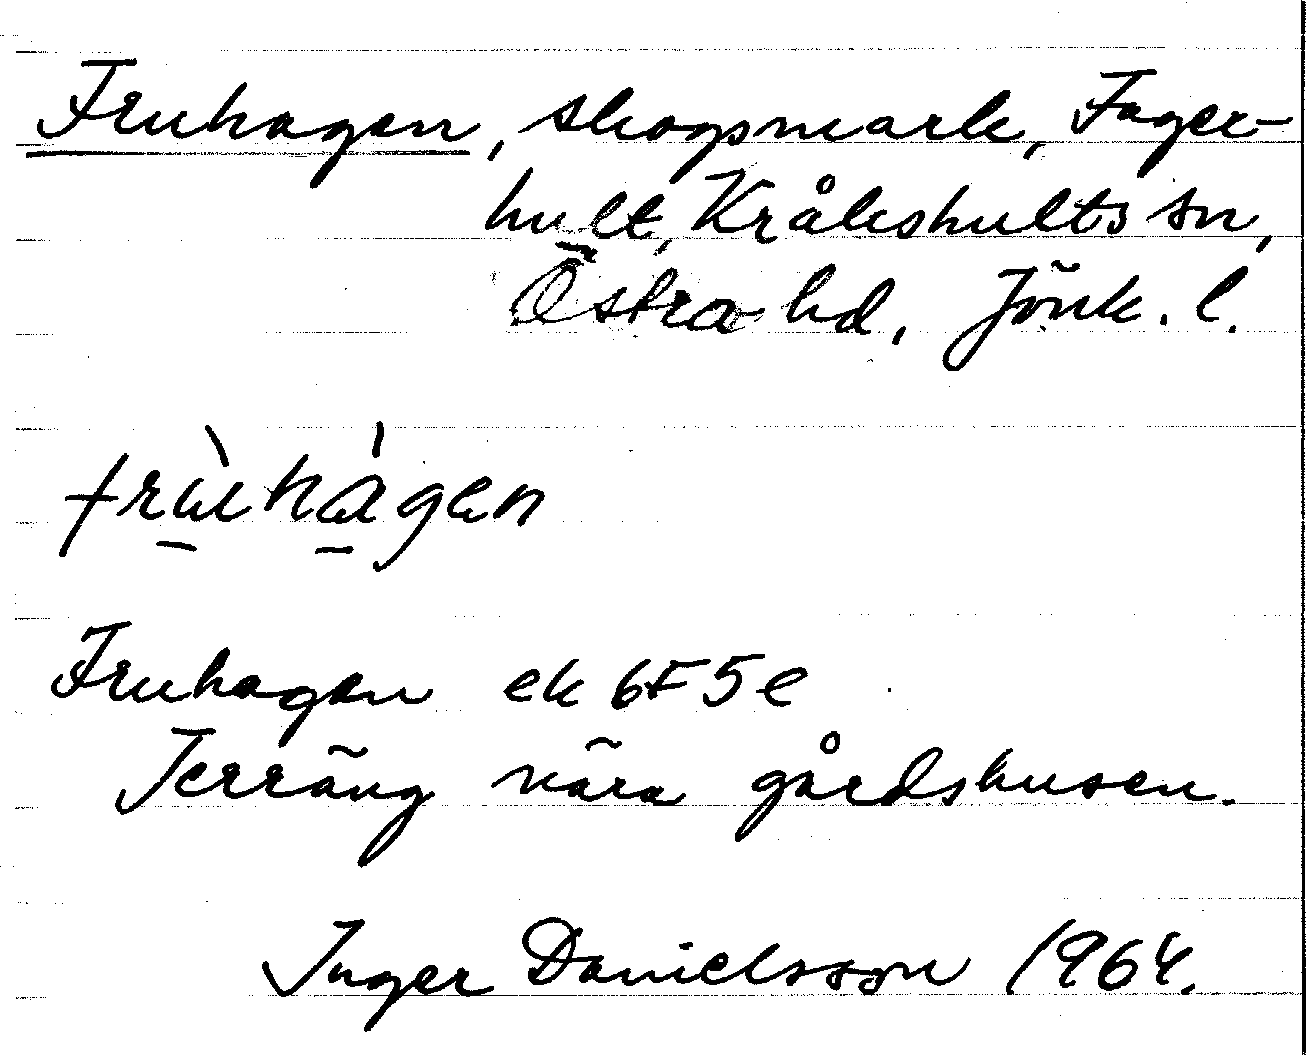 Fruhagen, skogsmark, Fager-
hult, Kråkshults sn,
Östra hd, Jönk. l.
frù̠há̠gen
Fruhagen ek 6F5e
Terräng nära gårdshusen.
Inger Danielsson 1964.